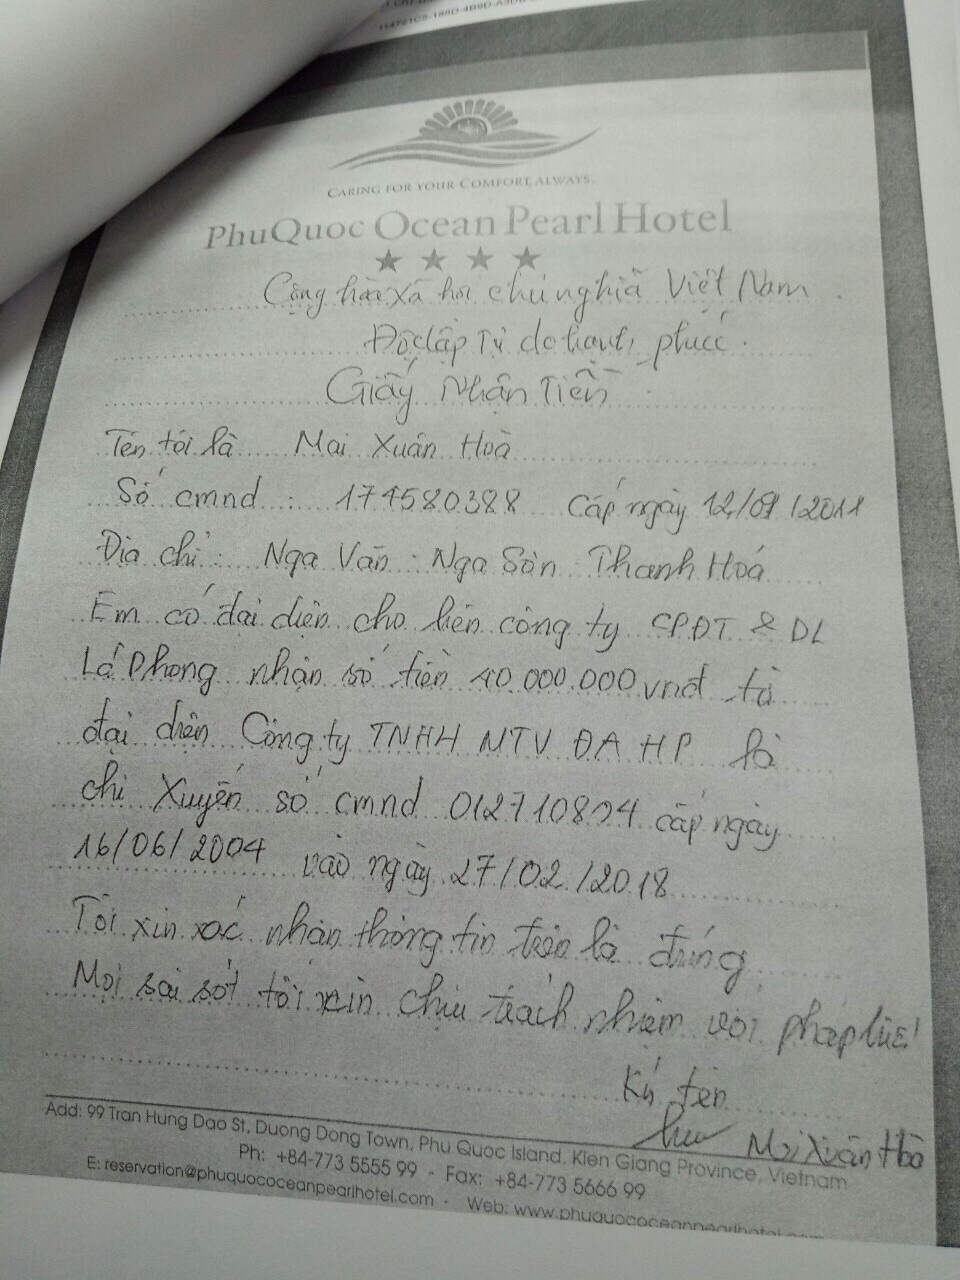 CARING FOR YOUR COMFORT, ALWAYS.
PHUQUOC OCEAN PEARL HOTEL
Cộng hòa xã hội chủ nghĩa Việt Nam
Độc lập Tự do hạnh phúc
Giấy Nhận Tiền
Tên tôi là Mai Xuân Hoà
Số cmnd : 174580388 Cấp ngày 12/09/2011
Địa chỉ : Nga Văn - Nga Sơn - Thanh Hoá
Em có đại diện cho bên công ty CPĐT & DL
Lá Phong nhận số tiền 40.000.000 vnđ từ
đại diện Công ty TNHH MTV ĐA HP là
chị Xuyến số cmnd 012710804 cấp ngày
16/06/2004 vào ngày 27/02/2018
Tôi xin xác nhận thông tin trên là đúng
Mọi sai sót tôi xin chịu trách nhiệm với pháp luật
Ký tên
Mai Xuân Hoà
Add: 99 Tran Hung Dao St, Duong Dong Town, Phu Quoc Island, Kien Giang Province, Vietnam
Ph: +84-773 5555 99 - Fax: +84-773 5666 99
E: reservation@phuquococeanpearlhotel.com - Web: www.phuquococeanpearlhotel.com